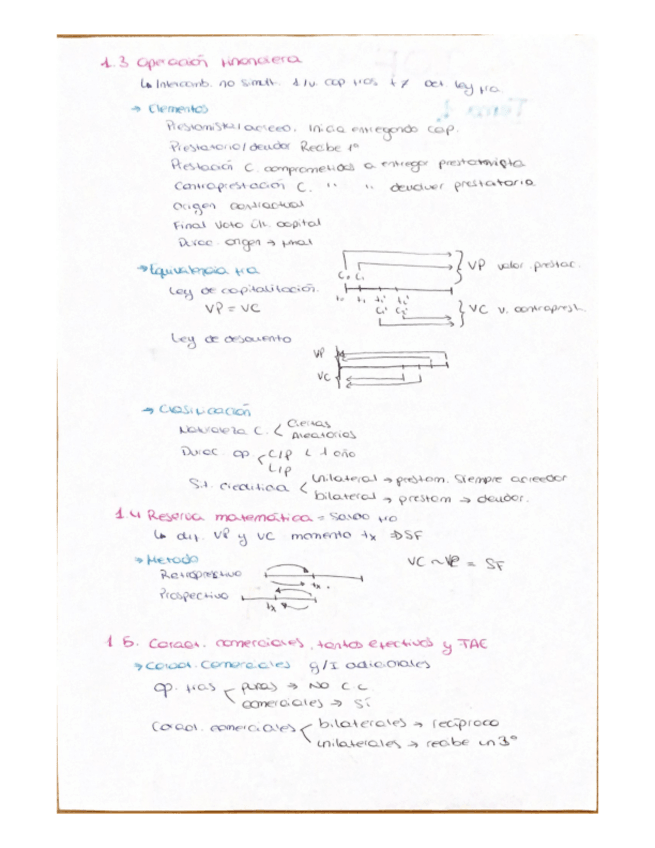 1.3 Operación financiera
↳ Intercamb. no simult. d/v. cap fros t ≠ act. ley fra
→ Elementos
Prestamista/acreed. Inicia entregando cap.
Prestatario/deudor Recibe 1º
Prestación C. comprometidos a entregar prestamista
Contraprestación C. " " devolver prestatario
Origen contractual
Final Vcto últ. capital
Durac. origen → final
→ Equivalencia fra
Ley de capitalización.
VP = VC
C₀ C₁
t₀ t₁ t₁' t₂'
C₁' C₂'
VP valor prestac.
VC v. contraprest.
Ley de descuento
VP
VC
→ Clasificación
Naturaleza C. < Ciertas
Aleatorios
Durac. op. < C/P < 1 año
L/P
S.t. crediticia < Unilateral → prestam. siempre acreedor
bilateral → prestam → deudor.
1.4 Reserva matemática = Saldo fro
↳ dif. VP y VC momento tx ⇒ SF
→ Metodo
VC ~ VP = SF
Retrospectivo
tx
Prospectivo
tx
1.5. Caract. comerciales, tantos efectivos y TAC
→ Caract. Comerciales g/I adicionales
op. fras < puras → NO C.C.
comerciales → Sí
Caract. comerciales < bilaterales → recíproco
unilaterales → recibe un 3º